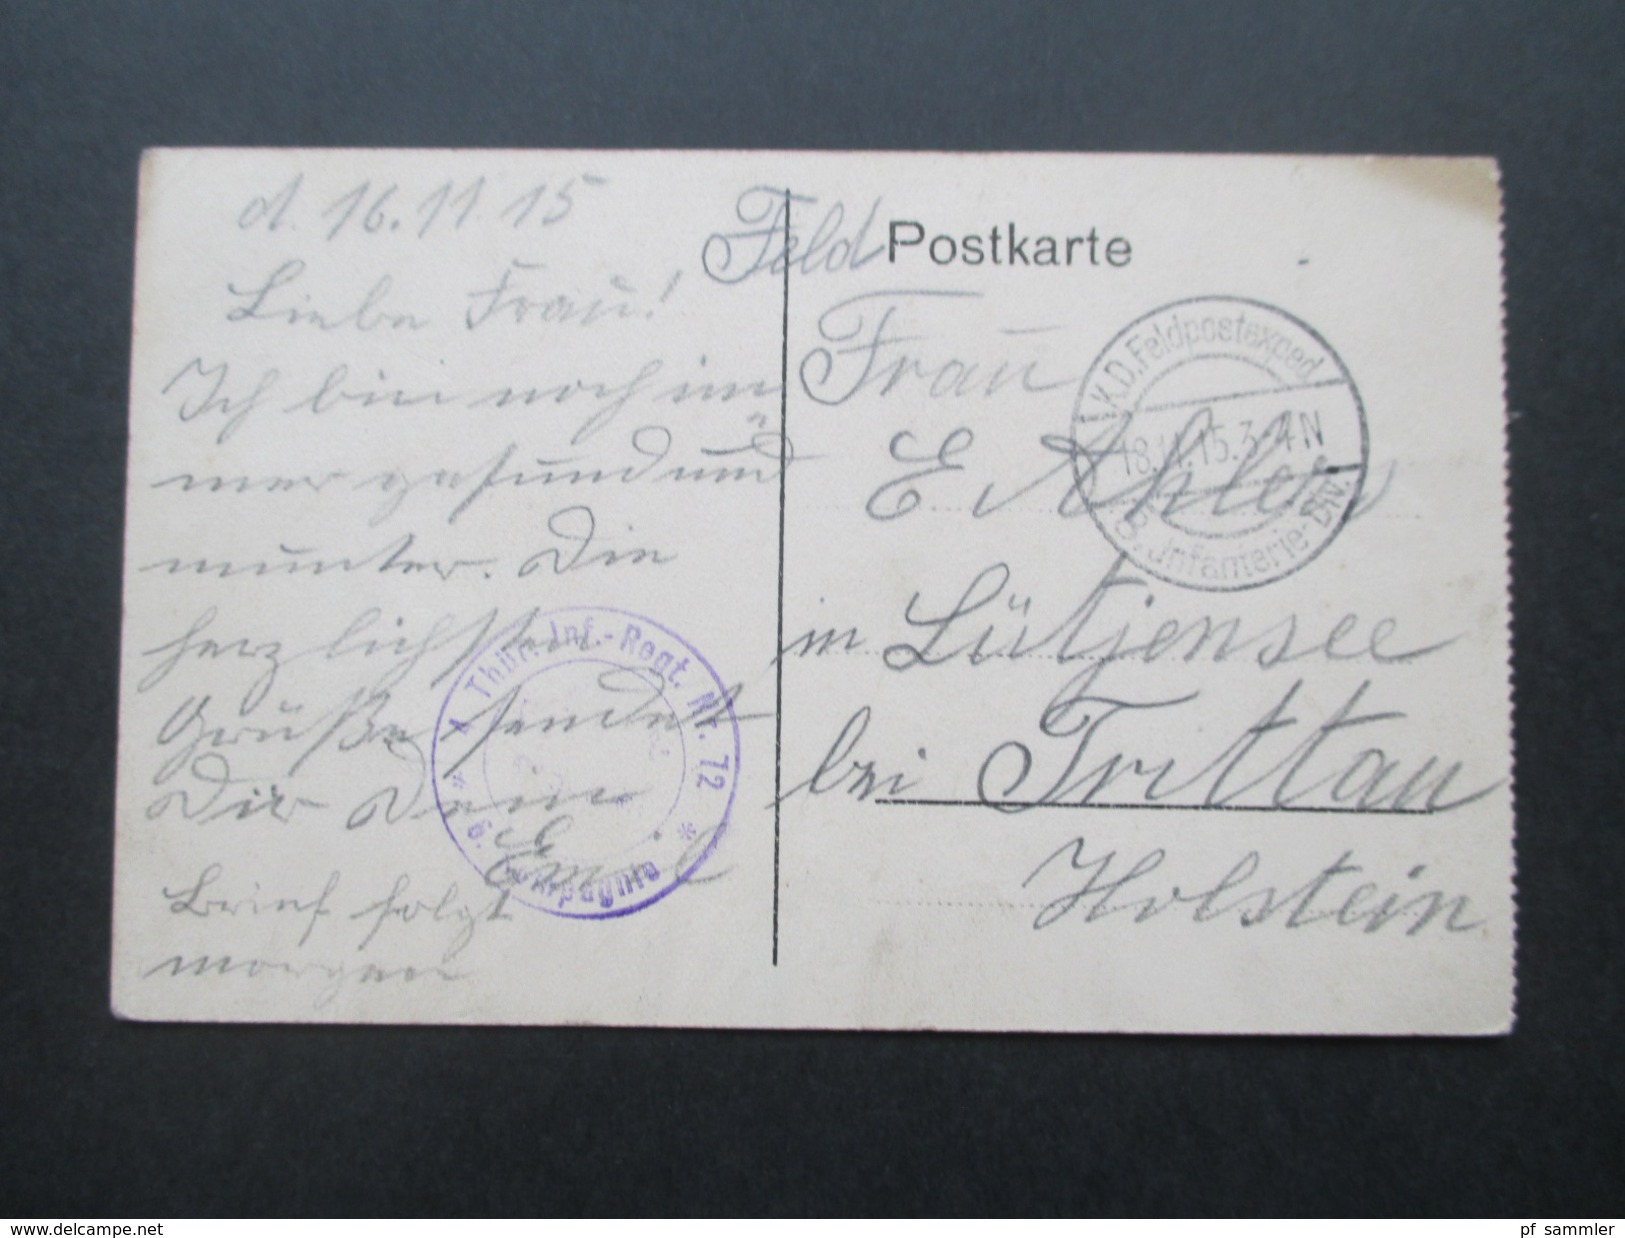 d. 16.11.15
Liebe Frau!
Ich bin noch im
mer gesund und
munter. Die
herzlichsten
Grüße sendet
Dir Dein
Emil
Brief folgt
morgen
Feld Postkarte
Frau
E. Ahlers
in Lütjensee
bei Trittau
Holstein
K.D. Feldpostexped.
18.11.15. 3-4N
8. Infanterie-Div.
4. Thür. Inf.-Regt. Nr. 72
* 6. Kompagnie *
www.delcampe.net
pf_sammler